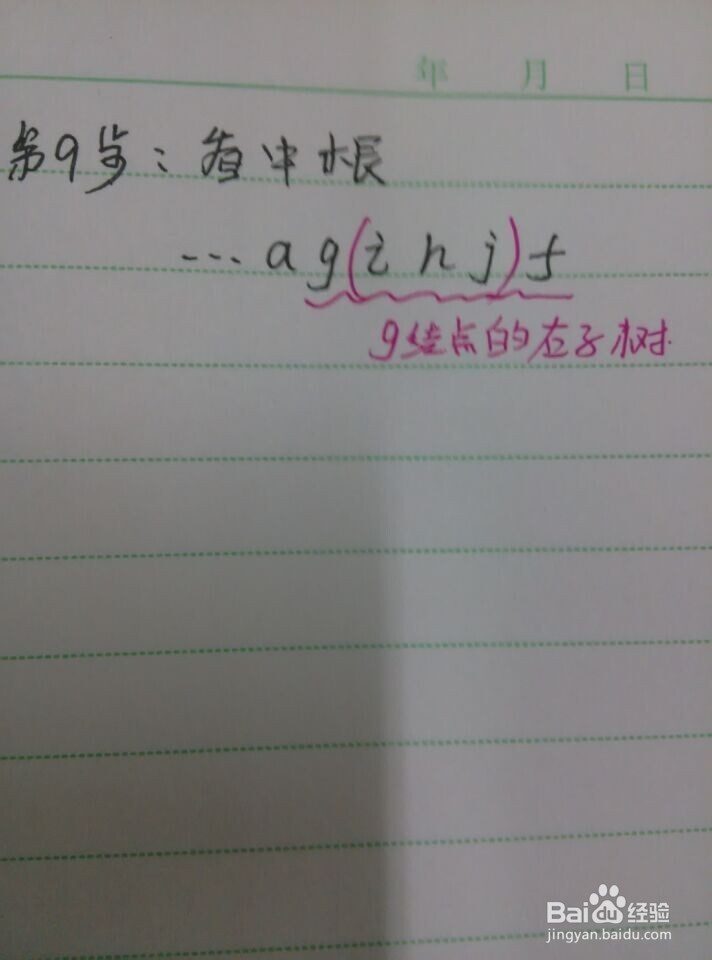 年 月 日
第9步:看中根
...a g(i h j)f
g结点的右子树
Baidu经验
jingyan.baidu.com